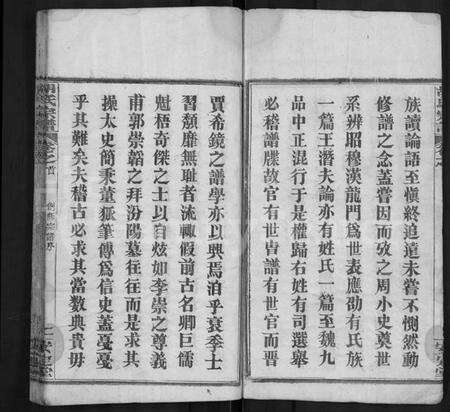 族讀論語至愼終追遠未嘗不惻然動
修譜之念蓋嘗因而攷之周小史奠世
系辨昭穆漢龍門爲世表應劭有氏族
一篇王潛夫論亦有姓氏一篇至魏九
品中正混行于是權歸右姓有司選舉
必稽譜牒故官有世胄譜有世官而晋
賈希鏡之譜學亦以興焉洎乎衰季士
習頹靡無耻者流輙假前古名卿巨儒
魁梧奇傑之士以自炫如李崇之尊義
甫郭崇韜之拜汾陽墓往往而是求其
操太史簡秉董狐筆傳爲信史蓋戞戞
乎其難矣夫稽古必求其當數典貴毋
胡氏宗譜 卷之首